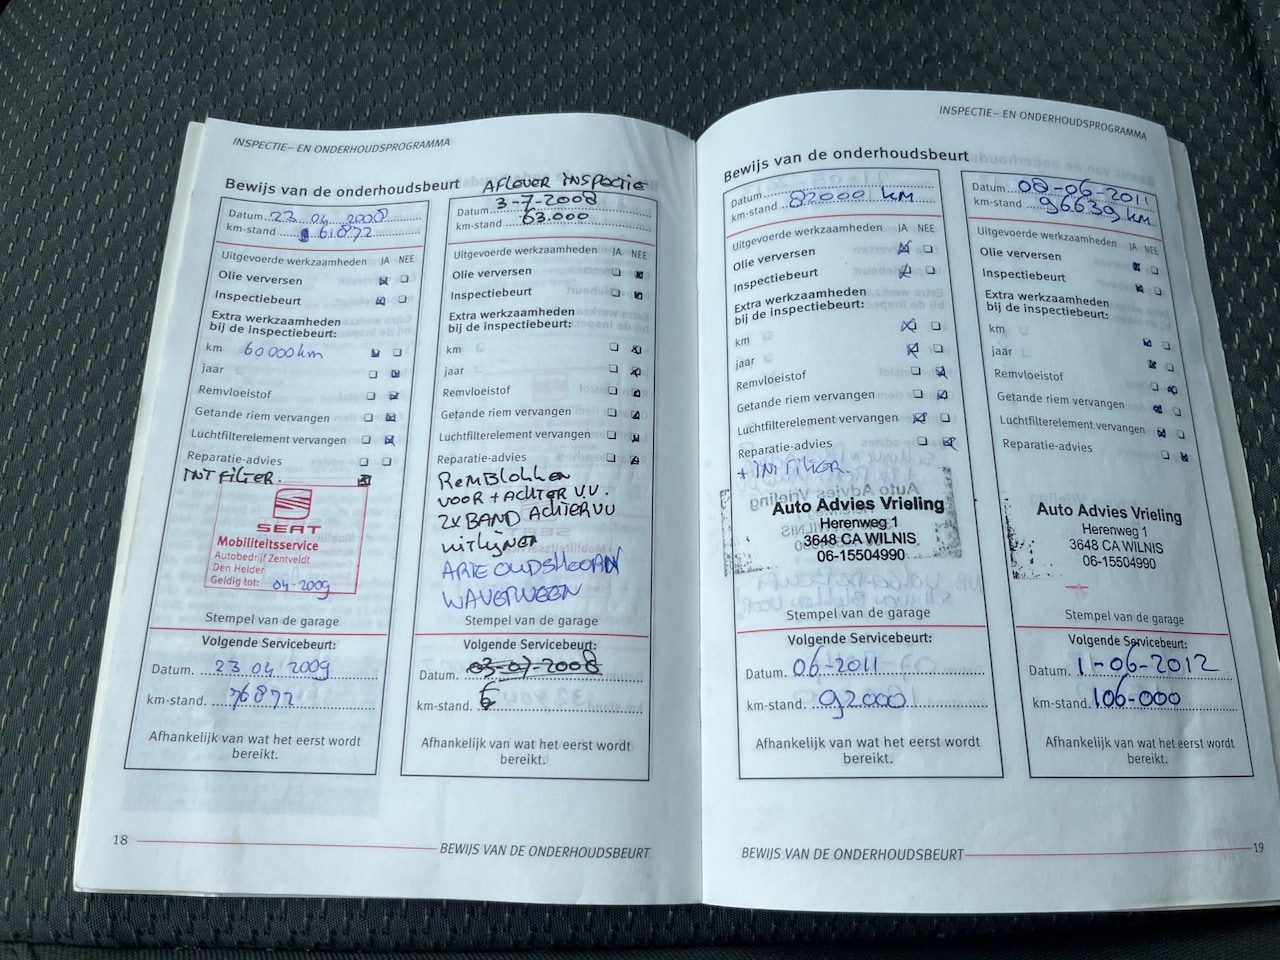 INSPECTIE– EN ONDERHOUDSPROGRAMMA
Bewijs van de onderhoudsbeurt
Datum 23 04 2008
km-stand 61872
Uitgevoerde werkzaamheden JA NEE
Olie verversen
Inspectiebeurt
Extra werkzaamheden
bij de inspectiebeurt:
km 60000km
jaar
Remvloeistof
Getande riem vervangen
Luchtfilterelement vervangen
Reparatie-advies
INT FILTER.
SEAT
Mobiliteitsservice
Autobedrijf Zentveldt
Den Helder
Geldig tot: 04-2009
Stempel van de garage
Volgende Servicebeurt:
Datum. 23 04 2009
km-stand. 76872
Afhankelijk van wat het eerst wordt
bereikt.
AFLEVER INSPECTIE
Datum 3-7-2008
km-stand 63.000
Uitgevoerde werkzaamheden JA NEE
Olie verversen
Inspectiebeurt
Extra werkzaamheden
bij de inspectiebeurt:
km
jaar
Remvloeistof
Getande riem vervangen
Luchtfilterelement vervangen
Reparatie-advies
REMBLOKKEN
VOOR + ACHTER V.V.
2X BAND ACHTER VV
UITLIJNEN
ARIE OUDSHOORN
WAVERVEEN
Stempel van de garage
Volgende Servicebeurt:
Datum. 03-07-2008
km-stand.
Afhankelijk van wat het eerst wordt
bereikt.
18
BEWIJS VAN DE ONDERHOUDSBEURT
INSPECTIE– EN ONDERHOUDSPROGRAMMA
Bewijs van de onderhoudsbeurt
Datum
km-stand 82000 KM
Uitgevoerde werkzaamheden JA NEE
Olie verversen
Inspectiebeurt
Extra werkzaamheden
bij de inspectiebeurt:
km
jaar
Remvloeistof
Getande riem vervangen
Luchtfilterelement vervangen
Reparatie-advies
+ INT FILTER.
Auto Advies Vrieling
Herenweg 1
3648 CA WILNIS
06-15504990
Stempel van de garage
Volgende Servicebeurt:
Datum. 06-2011
km-stand. 92000
Afhankelijk van wat het eerst wordt
bereikt.
Datum 08-06-2011
km-stand 96639 km
Uitgevoerde werkzaamheden JA NEE
Olie verversen
Inspectiebeurt
Extra werkzaamheden
bij de inspectiebeurt:
km
jaar
Remvloeistof
Getande riem vervangen
Luchtfilterelement vervangen
Reparatie-advies
Auto Advies Vrieling
Herenweg 1
3648 CA WILNIS
06-15504990
Stempel van de garage
Volgende Servicebeurt:
Datum. 11-06-2012
km-stand. 106-000
Afhankelijk van wat het eerst wordt
bereikt.
BEWIJS VAN DE ONDERHOUDSBEURT
19